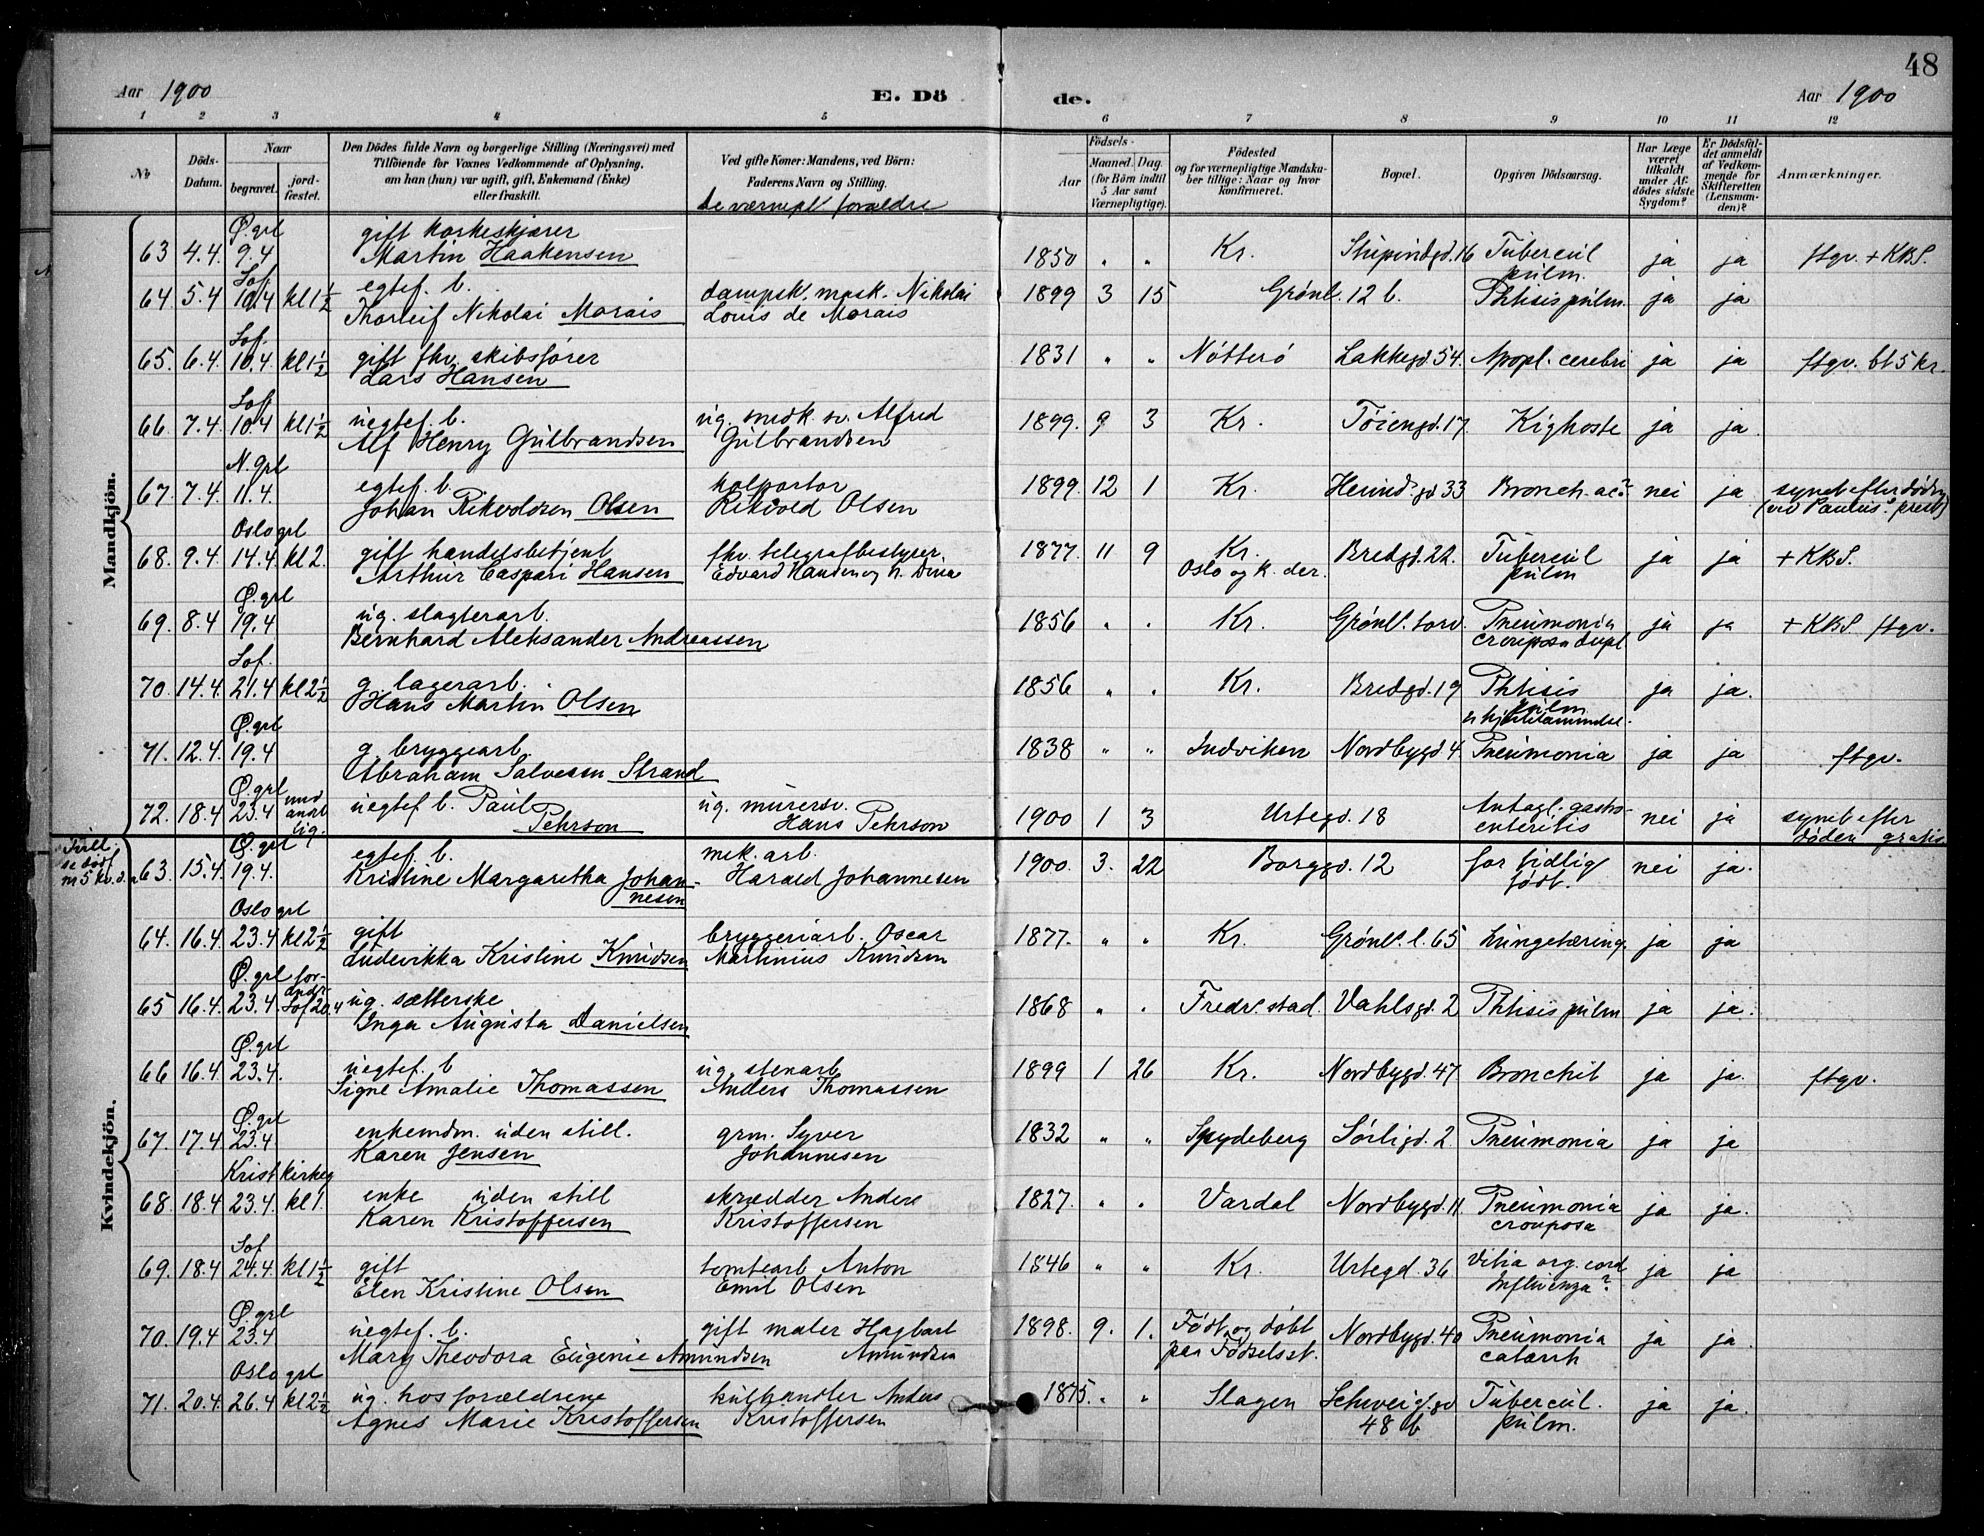 48
Aar 1900 E. Dö de. Aar 1900
1 2 3 4 5 6 7 8 9 10 11 12
No Döds-Datum. Naar begravet. jordfæstet. Den Dödes fulde Navn og borgerlige Stilling (Næringsvei) med Tilföiende for Voxnes Vedkommende af Oplysning, om han (hun) var ugift, gift, Enkemand (Enke) eller fraskilt. Ved gifte Koner: Mandens, ved Börn: Faderens Navn og Stilling. Födsels- Aar Maaned. Dag. (for Börn indtil 5 Aar samt Værnepligtige). Födested og for værnepligtige Mandskaber tillige: Naar og hvor konfirmeret. Bopæl. Opgiven Dödsaarsag. Har Læge været tilkaldt under Afdödes sidste Sygdom? Er Dödsfaldet anmeldt af Vedkommende for Skifteretten (Lensmanden)? Anmærkninger.
de værnepl forældre
Mandkjön.
Ø. grl gift korkeskjærer
63 4.4. 9.4 Martin Haakensen 1850 " " Kr. Stupindgd. 16 Tubercul pulm. ja ja ftgv. + KBS.
Sof egtef. b.
64. 5.4 10.4 kl 1½ Thorleif Nikolai Morais dampsk. mask. Nikolai Louis de Morais 1899 3 15 Grønl. 12 b. Phtisis pulm. ja ja
Sof. gift fhv. skibsfører
65. 6.4. 10.4. kl 1½ Lars Hansen 1831 " " Nøtterø Lakkegd. 54. Apopl. cerebri ja ja ftgv. bt 5 kr.
Sof uegtef. b.
66. 7.4. 10.4 kl 1½ Alf Henry Gulbrandsen ug. smdk. sv. Alfred Gulbrandsen 1899. 9 3 Kr. Tøiengd. 17. Kighoste ja ja.
N. grl egtef. b.
67. 7.4. 11.4. Johan Rikvoldsen Olsen kolportør Rikvold Olsen 1899. 12 1 Kr. Heimd. gd 33 Bronch. ac? nei ja synet efter døden
Oslo grl gift handelsbetjent
68. 9.4. 14.4. kl 2. Arthur Caspari Hansen fhv. telegrafbestyrer. Edvard Hansen og h. Dina 1877. 11 9 Kr. Oslo og k. der. Bredgd. 22. Tubercul pulm ja ja + KBS.
Ø. grl ug. slagterarb.
69. 8.4 19.4 Bernhard Aleksander Andreassen 1856 " . Kr. Grønl. torv. Pneumonia crouposa dupl ja ja + KBS. ftgv.
Sof. g. lagerarb.
70. 14.4. 21.4 kl 2½ Hans Martin Olsen 1856 " . Kr. Bredgd. 19 Phtisis pulm ja ja.
Ø. grl g. bryggearb.
71. 12.4. 19.4 Abraham Salvesen Strand 1838 " " Indviken Nordbygd 4. Pneumonia ja ja ftgv.
Ø. grl uegtef b. Paul
72. 18.4 23.4 Pehrson ug. murersv. Hans Pehrson 1900 1 3 Urtegd. 18 Antagl. gastroenteritis nei ja synet efter døden gratis
Kvindekjön.
Ø. grl egtef. b.
63. 15.4. 19.4. Kristine Margaretha Johannesen mek. arb. Harald Johannesen 1900. 3. 22 Borggd. 12 for tidlig født. nei ja.
Oslo grl gift
64. 16.4. 23.4 kl 2½ Ludevikka Kristine Knudsen bryggeriarb. Oscar Martinius Knudsen 1877. " " Kr. Grønl. l. 65 Lungetæring ja ja
Ø. grl ug. sætterske
65 16.4. 23.4. Sof 20.4 Inga Augusta Danielsen 1868 " . Fredr. stad. Vahlsgd. 2 Phtisis pulm ja ja.
Ø. grl uegtef. b
66 16.4. 23.4. Signe Amalie Thomassen ug. stenarb. Anders Thomassen 1899 1 26 Kr. Nordbygd. 47 Bronchit ja ja. ftgv.
Ø. grl enkemdm. uden still.
67. 17.4. 23.4 Karen Jensen grm. Syver Johannesen 1832 " " Spydeberg Sørligd. 2 Pneumonia ja ja
Krist kirkeg enke uden still
68. 18.4 23.4. kl 1. Karen Kristoffersen skrædder Anders Kristoffersen 1827. " . Vardal Nordbygd. 11. Pneumonia crouposa ja ja.
Sof gift
69. 18.4 24.4. kl 1½ Elen Kristine Olsen tomtearb Anton Emil Olsen 1846 " " Kr. Urtegd. 36 Vitia org. cord Influenza? ja ja
Ø. grl uegtef. b.
70. 19.4 23.4 Mary Theodora Eugenie Amundsen gift maler Hagbart Amundsen 1898. 9. 1. Født og døbt paa Fødselsst. Nordbygd. 40 Pneumonia catarrh ja ja.
Oslo grl ug. hos forældrene
71. 20.4. 26.4 kl 2½ Agnes Marie Kristoffersen kulhandler Anders Kristoffersen 1875. " " Slagen Schweig. gd 48 b Tubercul. pulm. ja ja.